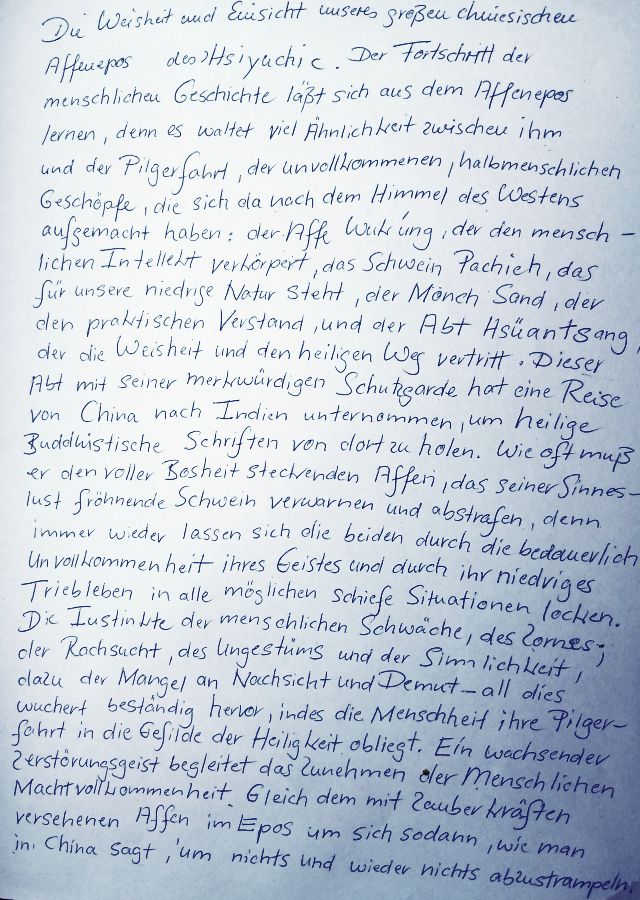 Die Weisheit und Einsicht unseres großen chinesischen
Affenepos des >Hsiyuchi<. Der Fortschritt der
menschlichen Geschichte läßt sich aus dem Affenepos
lernen, denn es waltet viel Ähnlichkeit zwischen ihm
und der Pilgerfahrt, der unvollkommenen, halbmenschlichen
Geschöpfe, die sich da nach dem Himmel des Westens
aufgemacht haben: der Affe Wuk'ung, der den mensch-
lichen Intellekt verkörpert, das Schwein Pachieh, das
für unsere niedrige Natur steht, der Mönch Sand, der
den praktischen Verstand, und der Abt Hsüantsang,
der die Weisheit und den heiligen Weg vertritt. Dieser
Abt mit seiner merkwürdigen Schutzgarde hat eine Reise
von China nach Indien unternommen, um heilige
Buddhistische Schriften von dort zu holen. Wie oft muß
er den voller Bosheit steckenden Affen, das seiner Sinnes-
lust fröhnende Schwein verwarnen und abstrafen, denn
immer wieder lassen sich die beiden durch die bedauerlich
Unvollkommenheit ihres Geistes und durch ihr niedriges
Triebleben in alle möglichen schiefe Situationen locken.
Die Instinkte der menschlichen Schwäche, des Zornes,
der Rachsucht, des Ungestüms und der Sinnlichkeit,
dazu der Mangel an Nachsicht und Demut - all dies
wuchert beständig hervor, indes die Menschheit ihre Pilger-
fahrt in die Gefilde der Heiligkeit obliegt. Ein wachsender
Zerstörungsgeist begleitet das Zunehmen der Menschlichen
Machtvollkommenheit. Gleich dem mit Zauberkräften
versehenen Affen im Epos um sich sodann, wie man
in China sagt, 'um nichts und wieder nichts abzustrampeln.